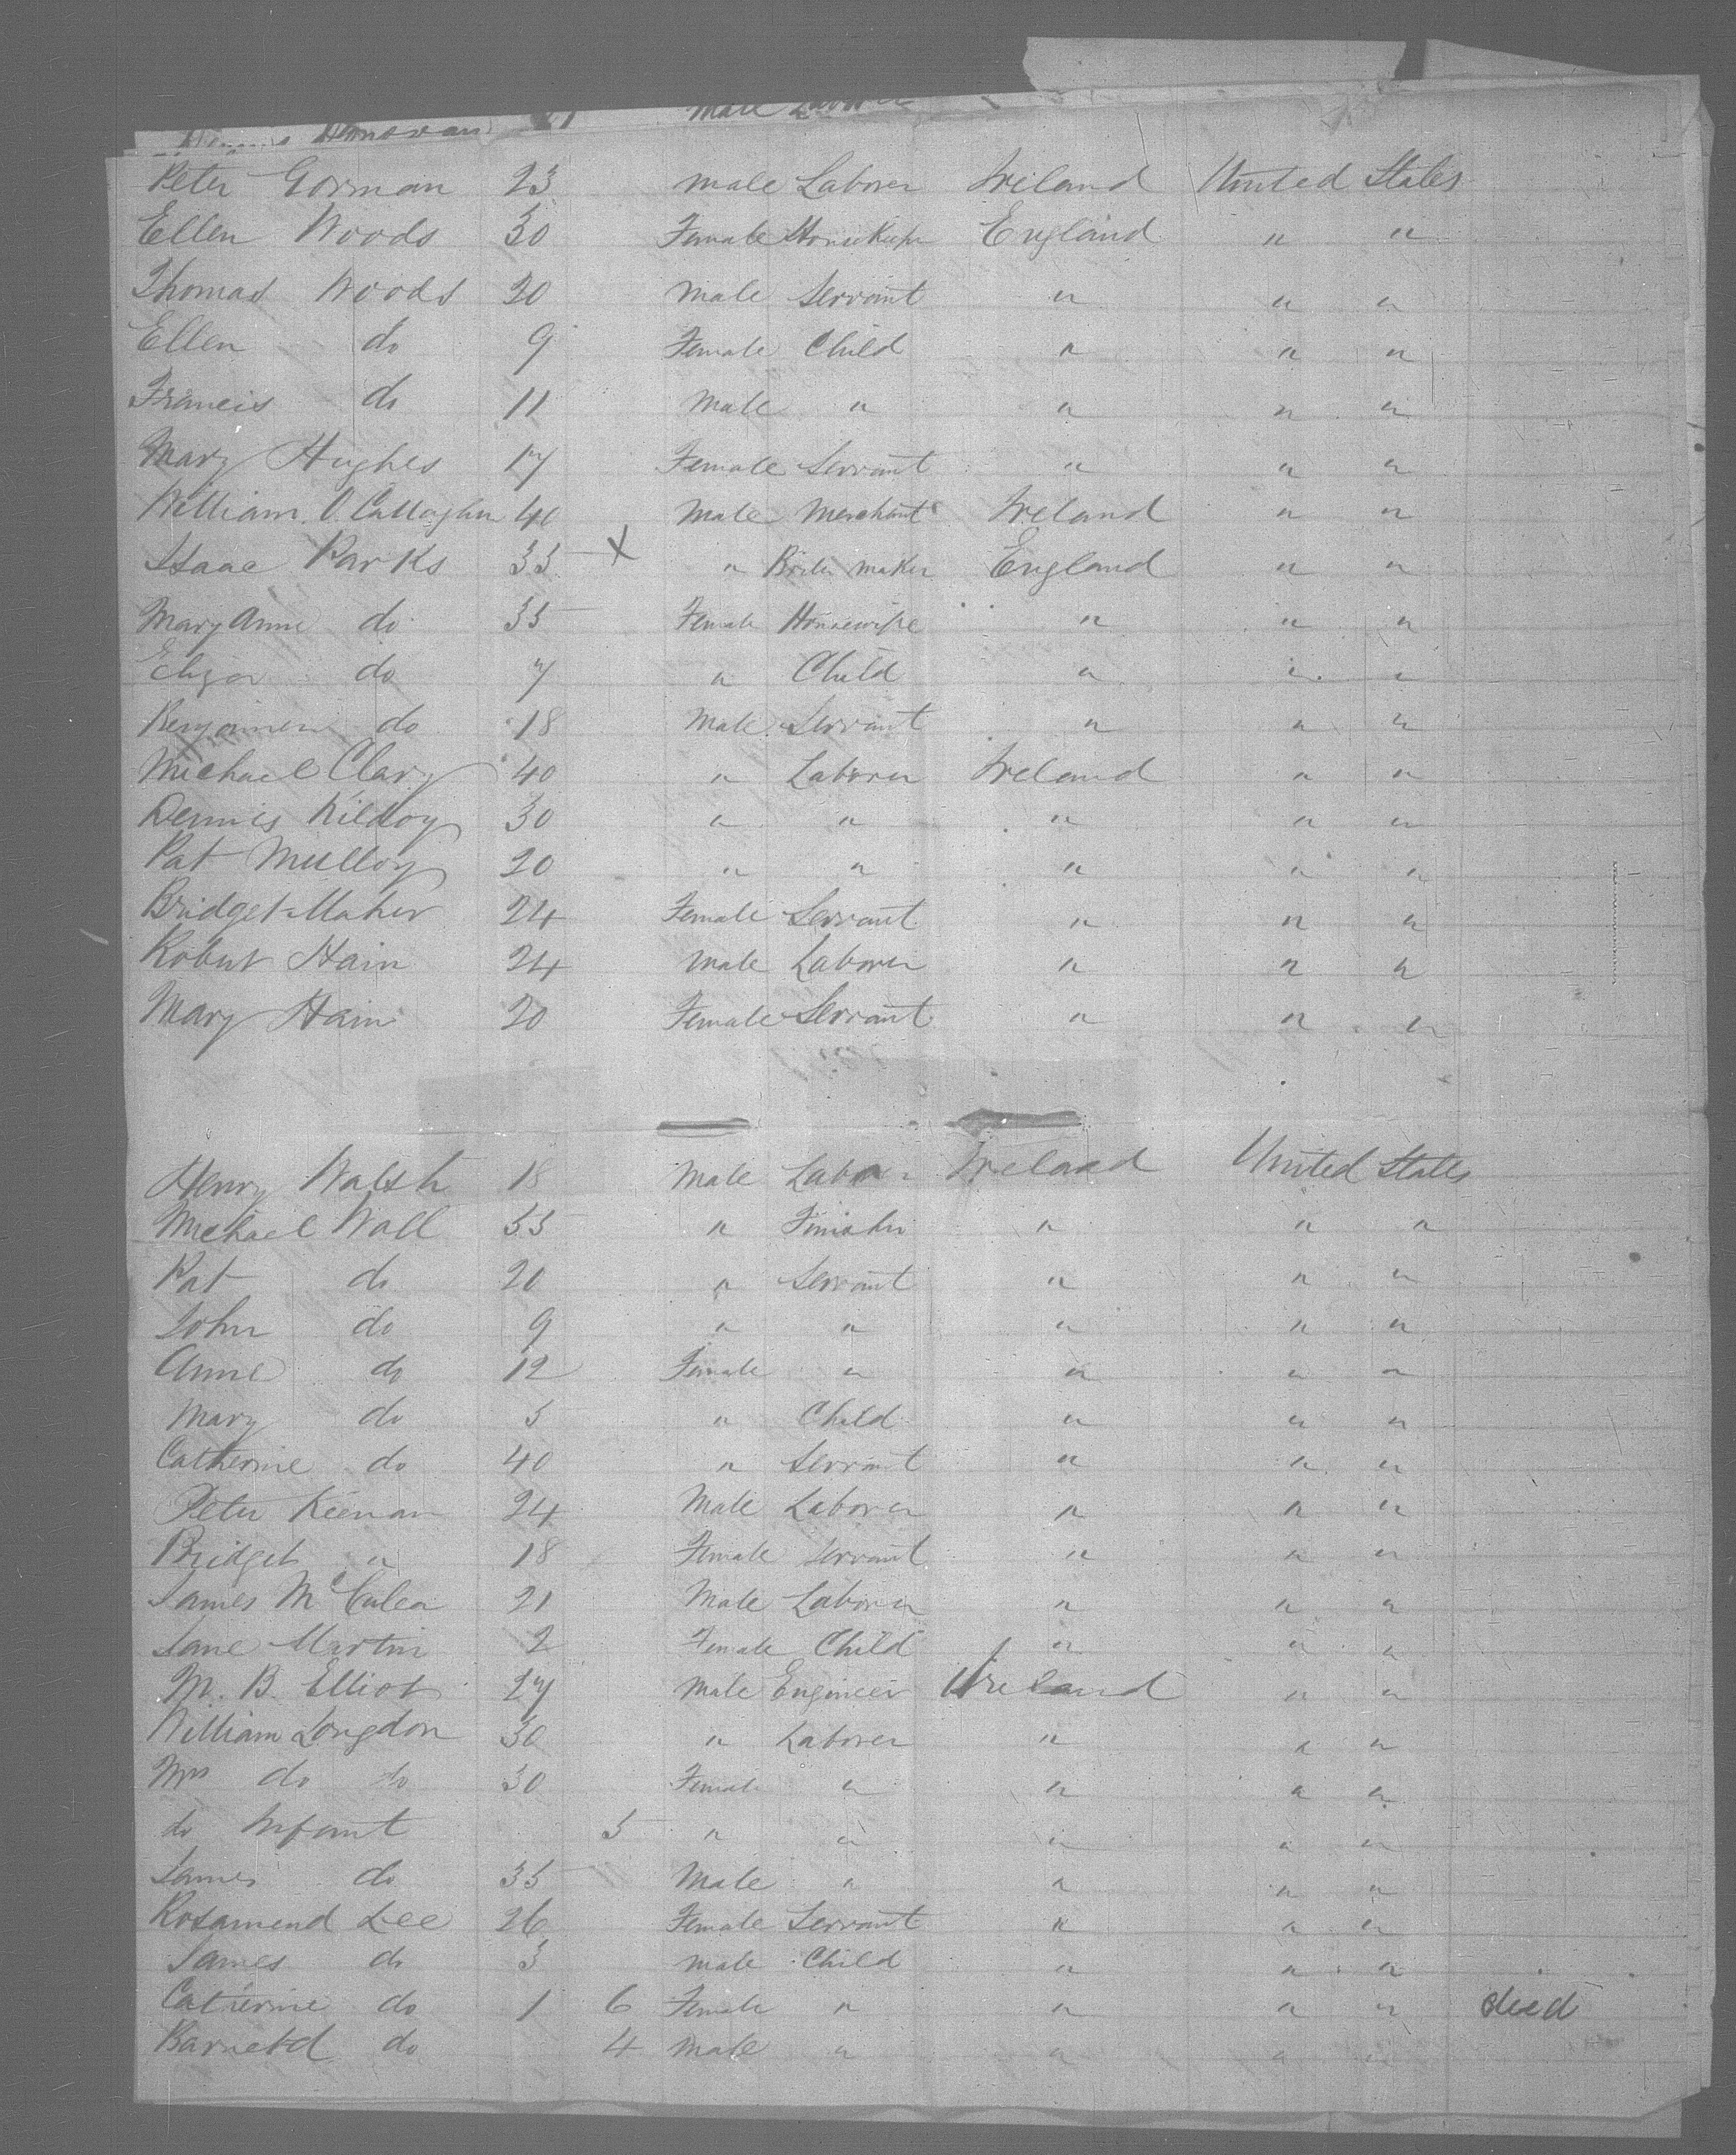 Donovan Male
Peter Gorman 23 Male Laborer Ireland United States
Ellen Woods 30 Female England " "
Thomas Woods 20 Male Servant " " "
Ellen do 9 Female Child " " "
Francis do 11 Male " " " "
Mary Hughes 17 Female Servant " " "
William O. Callaghn 40 Male Merchant Ireland " "
Isaac Parks 35 X " maker England " "
Mary Anne do 35 Female Housewife " " "
Eliza do 7 " Child " " "
Benjamen do 18 Male Servant " " "
Michael Clary 40 " Laborer Ireland " "
Dennis Kildoy 30 " " " " "
Pat Mulloy 20 " " " " "
Bridget Maher 24 Female Servant " " "
Robert Hain 24 Male Laborer " " "
Mary Hain 20 Female Servant " " "
Henry Walsh 18 Male Ireland United States
Michael Wall 55 " " " "
Pat do 20 " Servant " " "
John do 9 " " " " "
Anne do 12 Female " " " "
Mary do 5 " Child " " "
Catherine do 40 " Servant " " "
Peter Keenan 24 Male Laborer " " "
Bridget " 18 Female Servant " " "
James 21 Male Laborer " " "
Jane Martin 2 Female Child " " "
M. B. Elliot 27 Male Engineer Ireland " "
William Longdon 30 " Laborer " " "
Mrs do do 30 Female " " " "
do Infant 5 " " " " "
James do 35 Male " " " "
Rosamend Lee 26 Female Servant " " "
James do 3 Male Child " " "
Catherine do 1 6 Female " " " " died
do 4 Male " " " "